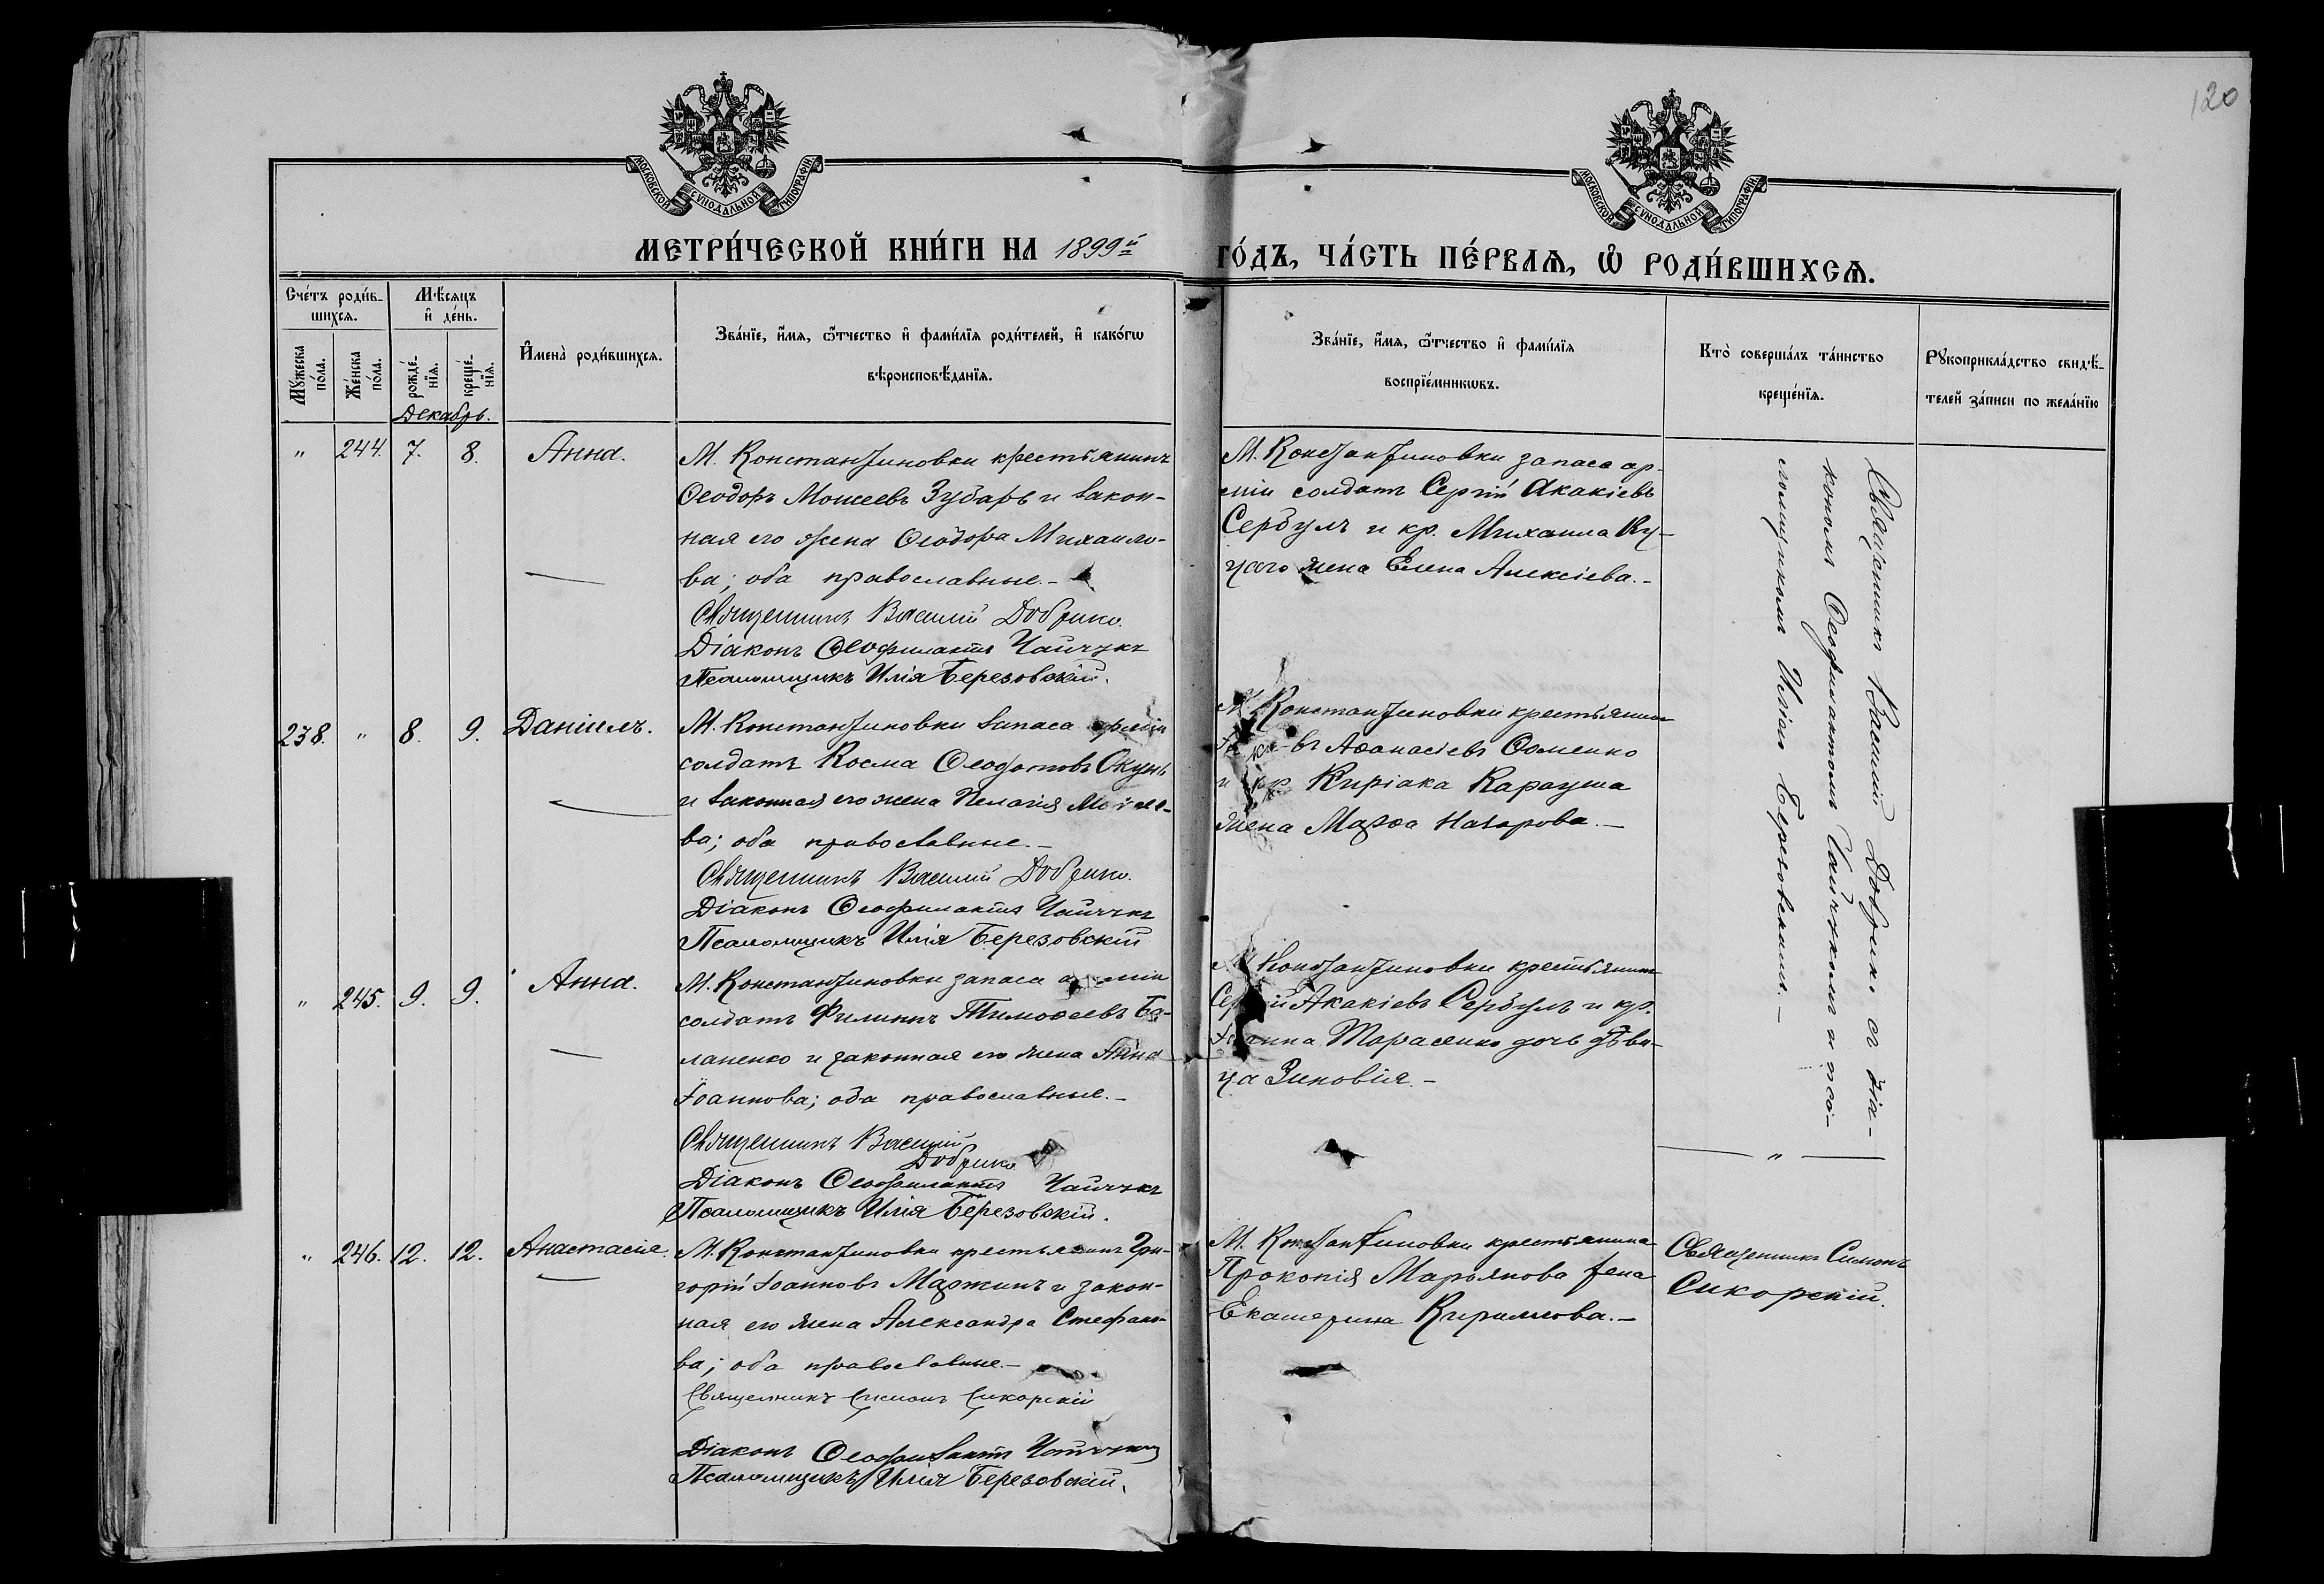 120
МОСКОВСКОЙ СѴНОДАЛЬНОЙ ТИПОГРАФІИ
МОСКОВСКОЙ СѴНОДАЛЬНОЙ ТИПОГРАФІИ
МЕТРИ́ЧЕСКОЙ КНИ́ГИ НА 1899й
ГО́ДЪ, ЧА́СТЬ ПЕ́РВАѦ, Ѽ РОДИ́ВШИХСѦ.
Сче́тъ роди́в-
шихсѧ.
Мѣ́сѧцъ
и҆ де́нь.
Мꙋ́жеска
по́ла.
Же́нска
по́ла.
рожде́-
нїѧ.
креще́-
нїѧ.
И҆мена̀ роди́вшихсѧ.
Зва́нїе, и҆́мѧ, ѻ҆́тчество и҆ фами́лїѧ роди́телей, и҆ како́гѡ
вѣроисповѣ́данїѧ.
Зва́нїе, и҆́мѧ, ѻ҆́тчество и҆ фами́лїѧ
воспрїе́мникѡвъ.
Кто̀ соверша́лъ та́инство
креще́нїѧ.
Рꙋкоприкла́дство свидѣ́-
телей за́писи по жела́нїю
Декабрь.
" 244. 7. 8. Анна.
М. Константиновки крестьянинъ
Ѳеодоръ Моисеевъ Зубарь и закон-
ная его жена Ѳеодора Михаило-
ва; оба православные.-
Священникъ Василій Добрико.
Діаконъ Ѳеофилактъ Чайчукъ
Псаломщикъ Илія Березовскій.
М. Константиновки запаса ар-
міи солдатъ Сергій Акакіевъ
Сербулъ и кр. Михаила Ку-
цаго жена Елена Алексіева.-
Священникъ Василій Добрико съ діа-
кономъ Ѳеофилактомъ Чайчукомъ и пса-
ломщикомъ Иліею Березовскимъ.-
238. " 8. 9. Даніилъ.
М. Константиновки запаса арміи
солдатъ Косма Ѳеодотовъ Окунь
и законная его жена Пелагія Моисее-
ва; оба православные.-
Священникъ Василій Добрико.
Діаконъ Ѳеофилактъ Чайчукъ
Псаломщикъ Илія Березовскій
М. Константиновки крестьянинъ
Аѳанасіевъ Ѳоменко
и кр. Киріака Карауша
жена Марѳа Назарова.-
" 245. 9. 9. Анна.
М. Константиновки запаса арміи
солдатъ Филиппъ Тимоѳеевъ Ба-
лаценко и законная его жена Анна
Іоаннова; оба православные.-
Священникъ Василій
Добрико
Діаконъ Ѳеофилактъ Чайчукъ
Псаломщикъ Илія Березовскій.
М. Константиновки крестьянинъ
Сергій Акакіевъ Сербулъ и кр.
Іоанна Тарасенко дочь дѣви-
ца Зиновія.-
"
" 246. 12. 12. Анастасія.
М. Константиновки крестьянинъ Гри-
горій Іоанновъ Маржинъ и закон-
ная его жена Александра Стефано-
ва; оба православные.-
Священникъ Симонъ Сикорскій
Діаконъ Ѳеофилактъ Чайчукъ
Псаломщикъ Илія Березовскій.
М. Константиновки крестьянина
Прокопія Марьянова жена
Екатерина Кириллова.-
Священникъ Симонъ
Сикорскій.